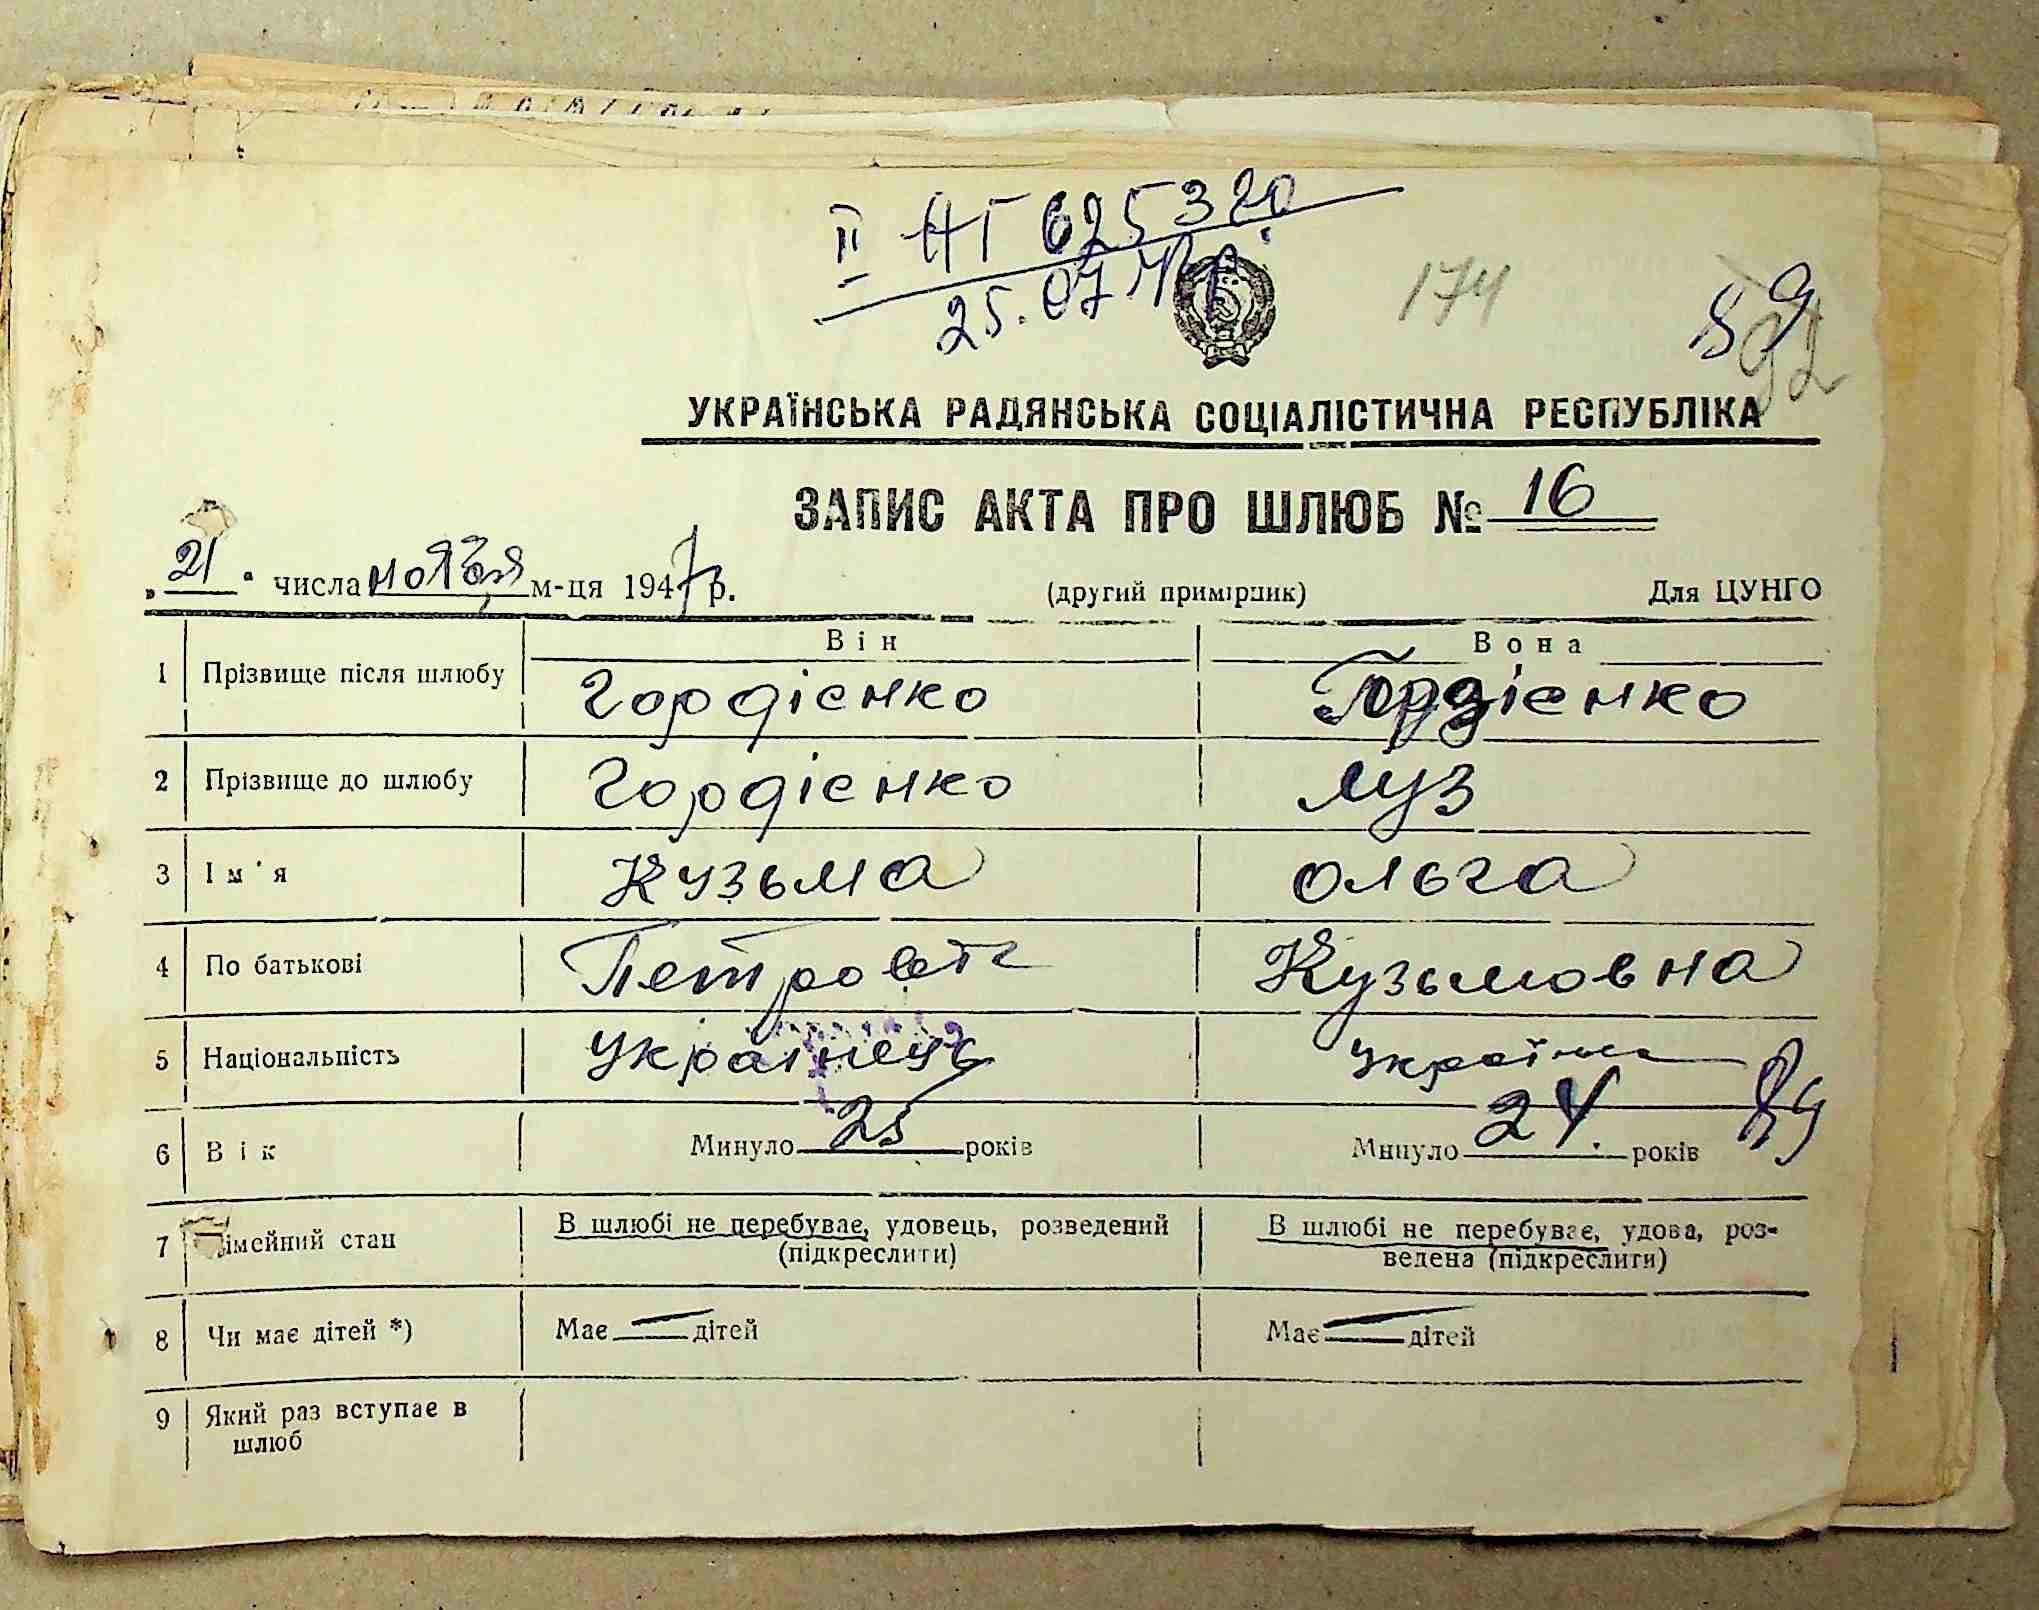 II НГ 625320
25.07
174
89
92
УКРАЇНСЬКА РАДЯНСЬКА СОЦІАЛІСТИЧНА РЕСПУБЛІКА
ЗАПИС АКТА ПРО ШЛЮБ № 16
„21“ числа ноября м-ця 1947 р. (другий примірник) Для ЦУНГО
Він Вона
1 Прізвище після шлюбу Гордієнко Гордієнко
2 Прізвище до шлюбу Гордієнко Луз
3 Ім'я Кузьма Ольга
4 По батькові Петрович Кузьмовна
5 Національність Українець Українка
6 Вік Минуло 25 років Минуло 24. років
89
7 Сімейний стан В шлюбі не перебуває, удовець, розведений (підкреслити) В шлюбі не перебуває, удова, роз-
ведена (підкреслити)
8 Чи має дітей *) Має — дітей Має — дітей
9 Який раз вступає в
шлюб